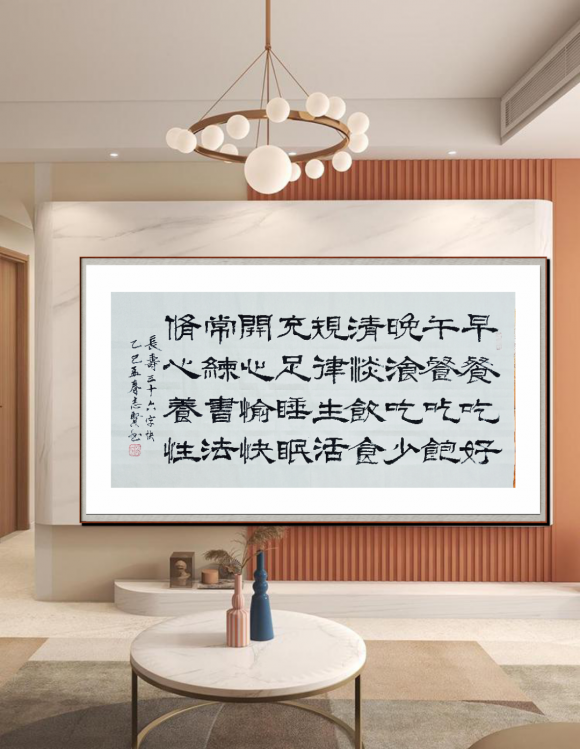 早餐吃好
午餐吃飽
晚湌吃少
清淡飲食
規律生活
充足睡眠
開心愉快
常練書法
脩心養性
長壽三十六字訣
乙巳孟春志賢書